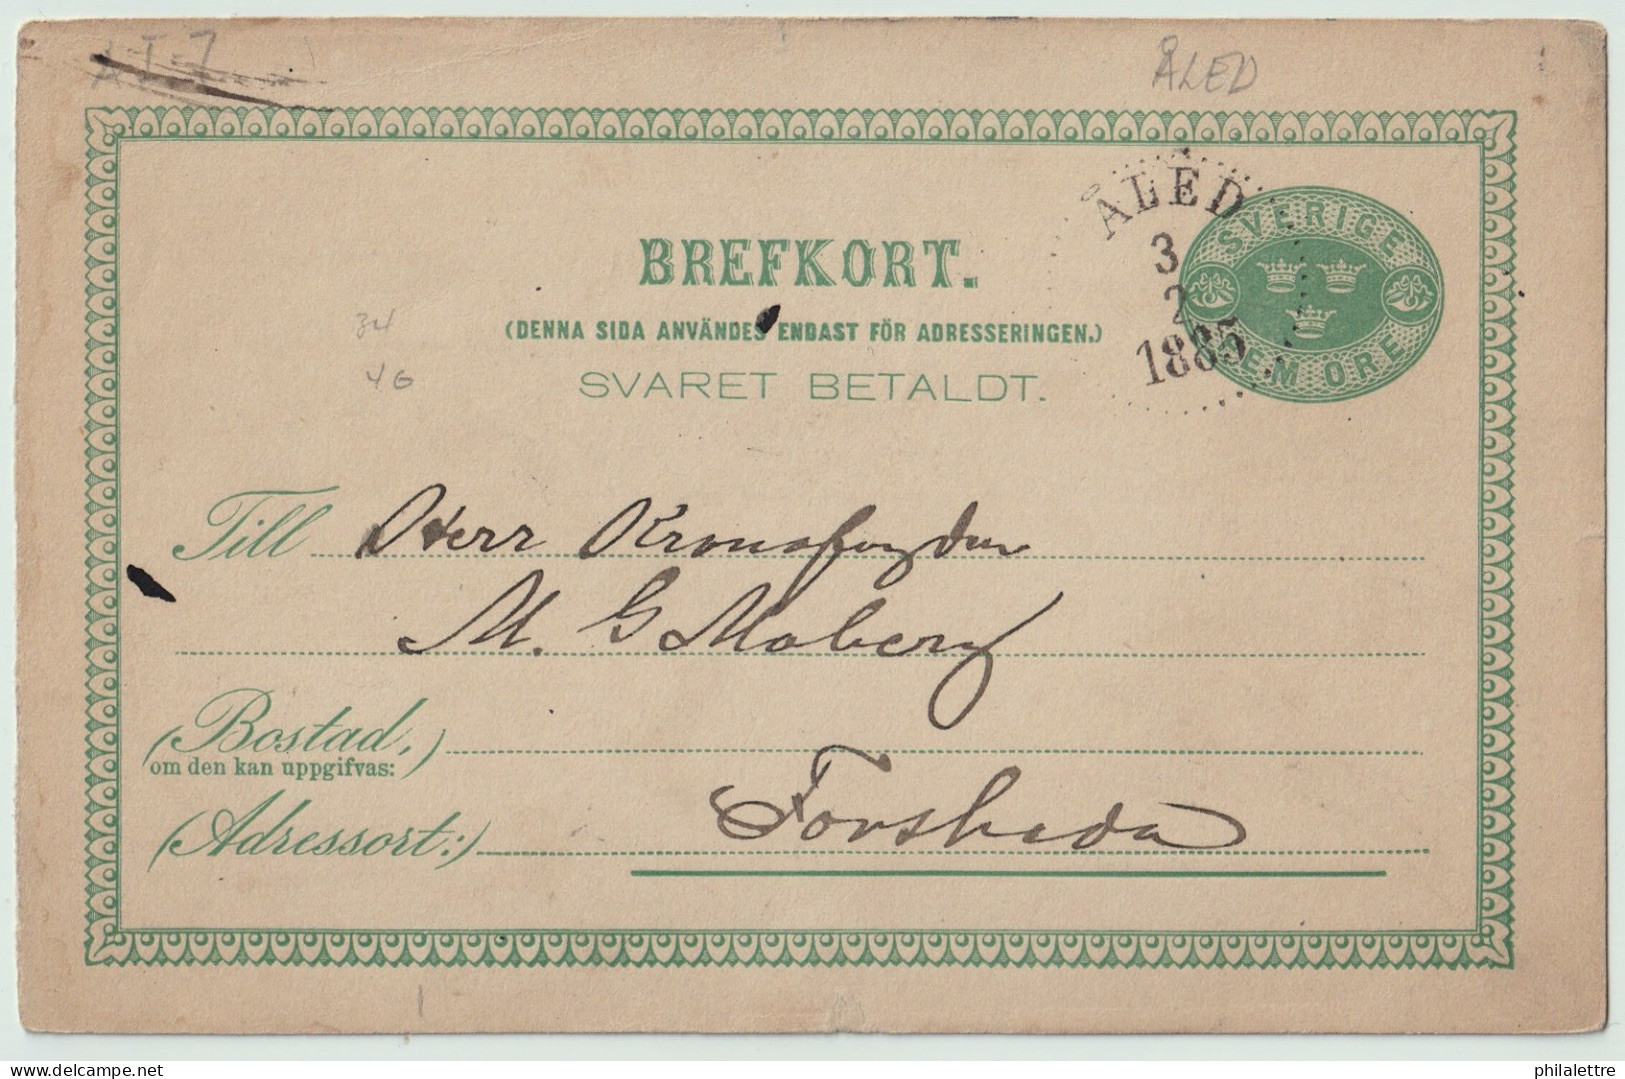 ÅLED
ÅLED
3
2
1885
SVERIGE
FEM ÖRE
BREFKORT.
(DENNA SIDA ANVÄNDES ENDAST FÖR ADRESSERINGEN.)
34
46
SVARET BETALDT.
Till Herr Kronofogden
M. G Moberg
(Bostad,)
om den kan uppgifvas:
(Adressort:) Forsheda
philalettre